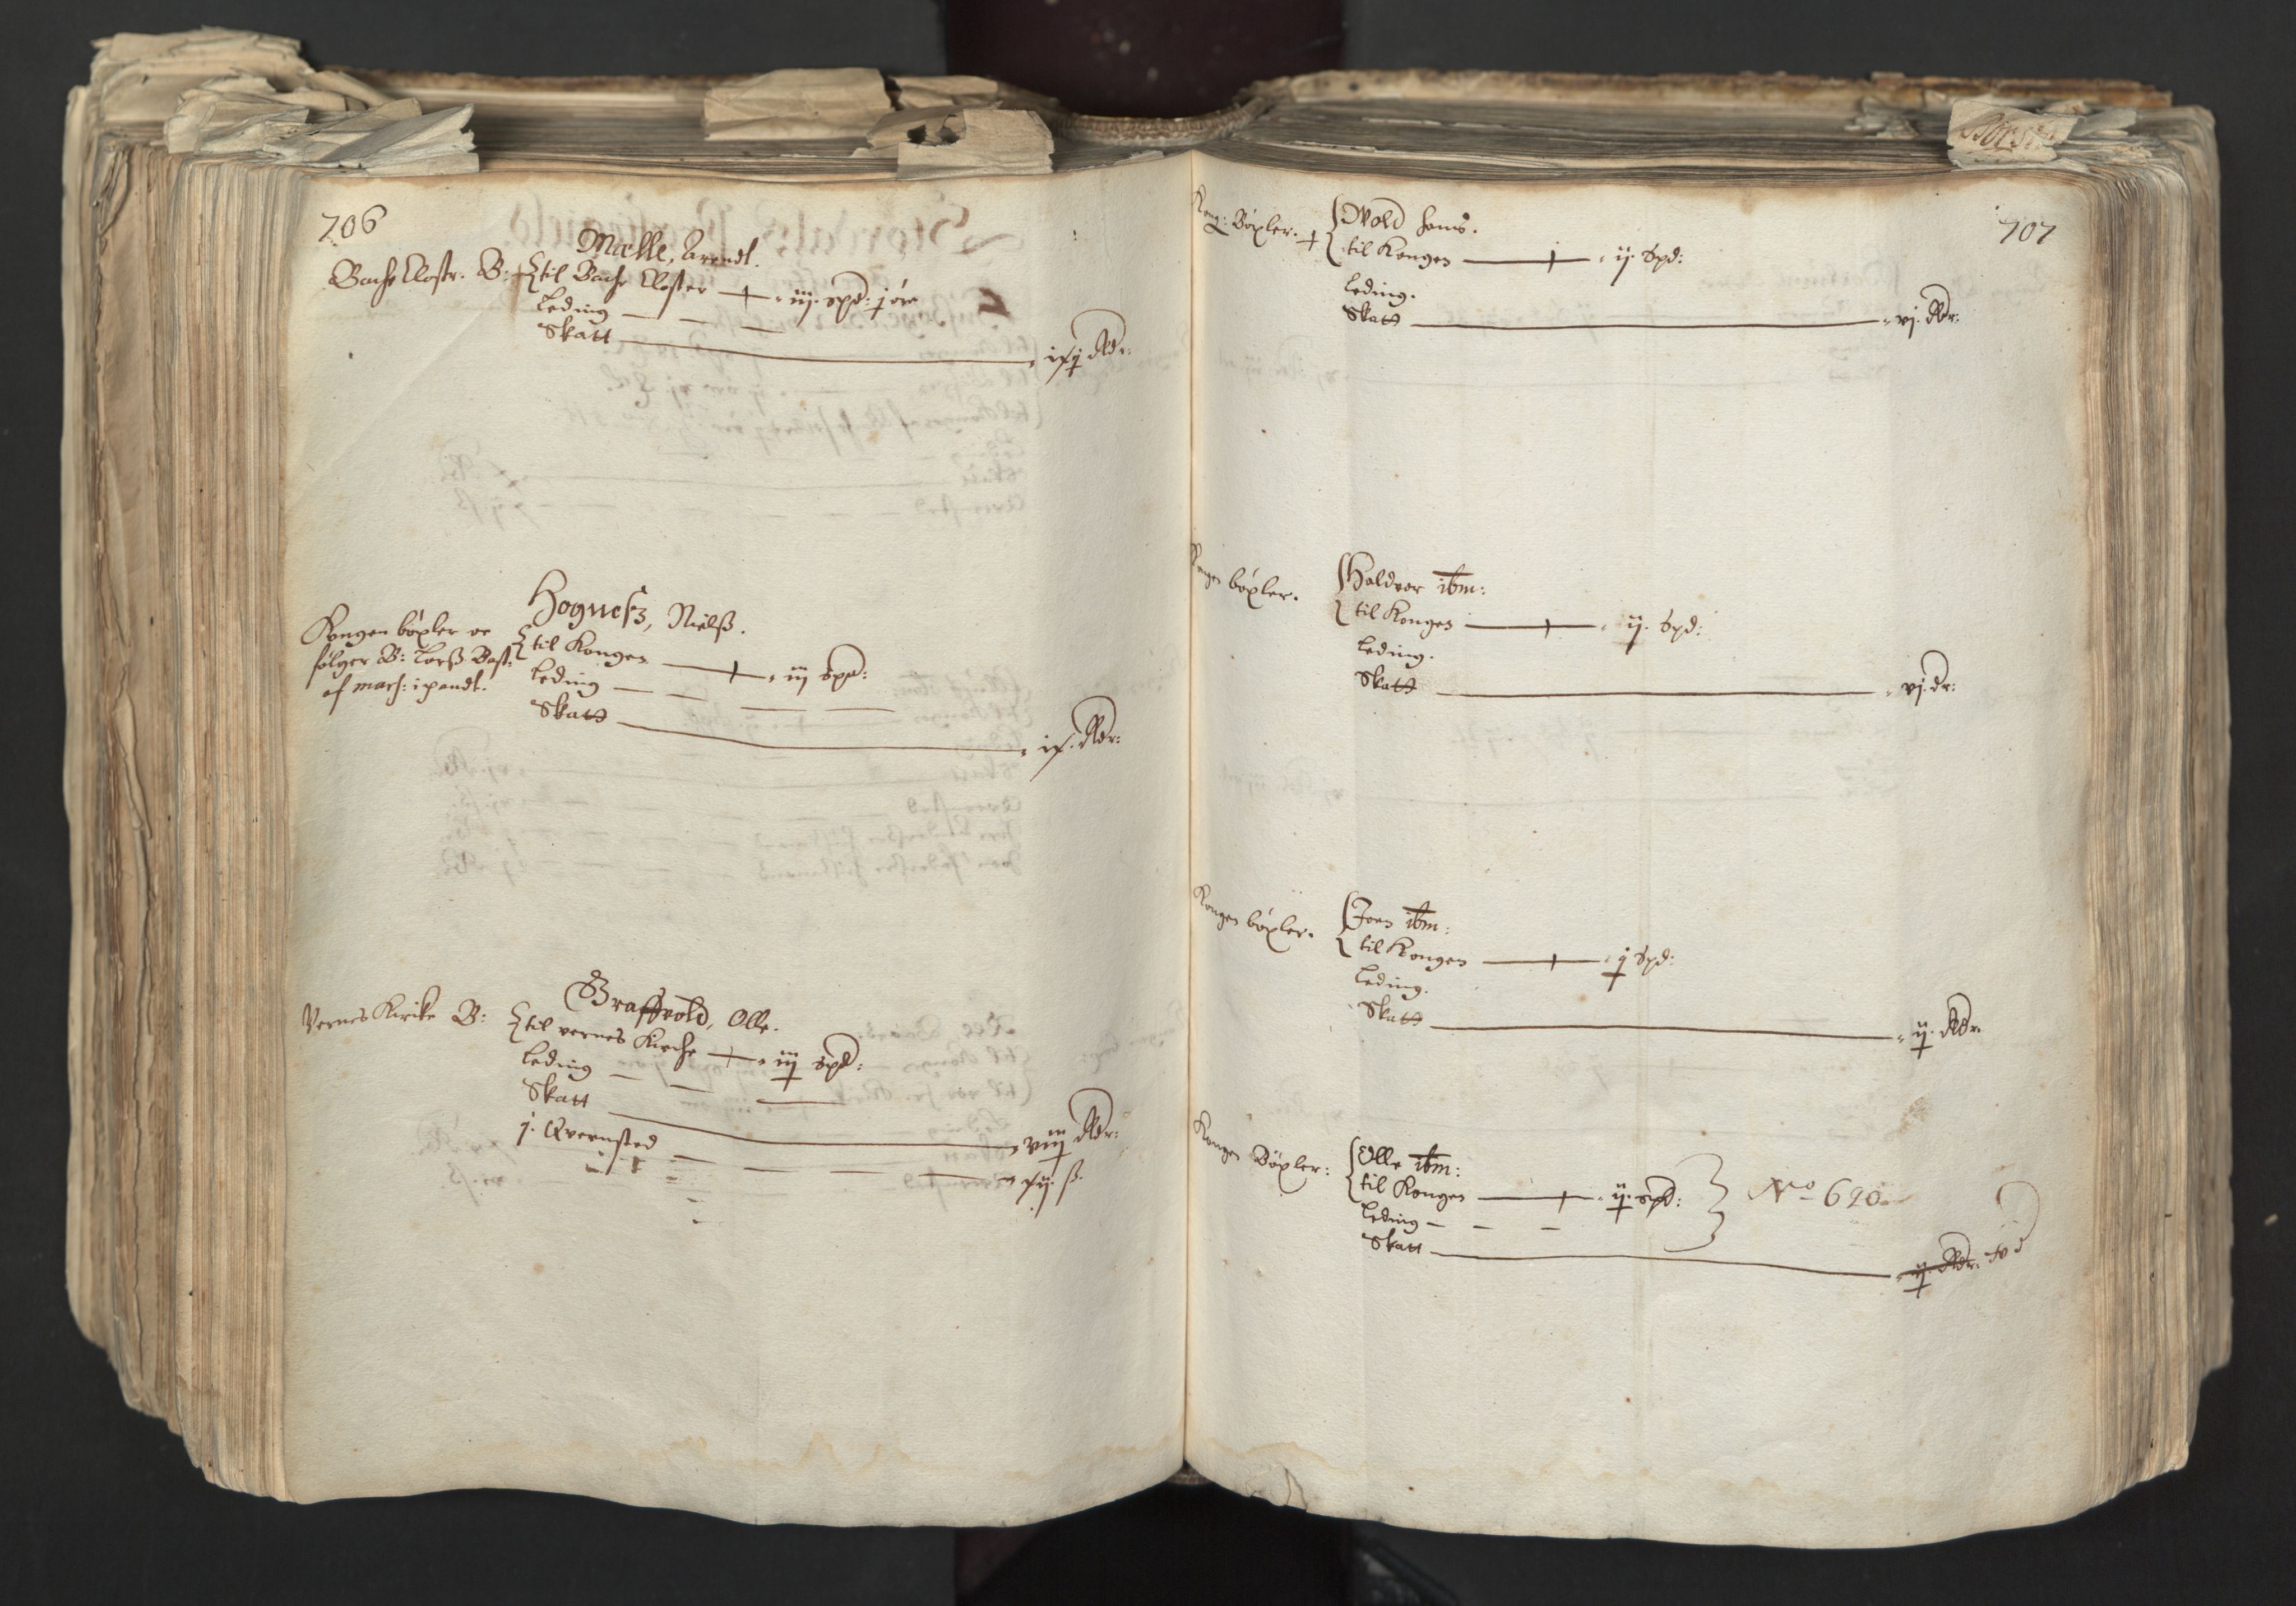 706
Mælle, Arendt.
Bache Clostr. B: + til Bache Closter — + — iij. spd: j øre
Leding — — —
Skatt — ixÿ Rdr:
Hognesz, Nielß.
Kongen bøxler oc
følger B: Larß Bast:
af mark: i pandt.
til Kongen — + — iij spd:
Leding — — — —
Skatt — ix. Rdr:
Graffvold, Olle.
Vernes Kirike B: til vernes Kirche — + — iij spd:
Leding — — —
Skatt — viij Rdr:
j. Qvernsted — — — — xij. ß.
707
Kong: Bøxler. + Wold hans.
til Kongen — + — ij. Spd:
Leding.
Skatt — vj. Rdr:
Kongen bøxler. Haldvor ibm:
til Kongen — + — ij. Spd:
Leding.
Skatt — vj. dr:
Kongen bøxler. Joen ibm:
til Kongen — + — j Spd:
Leding.
Skatt — ij. Rdr.
Kongen Bøxler: Olle ibm:
til Kongen — + — ij. spd: No 690
Leding — — —
Skatt — ij. Rdr: